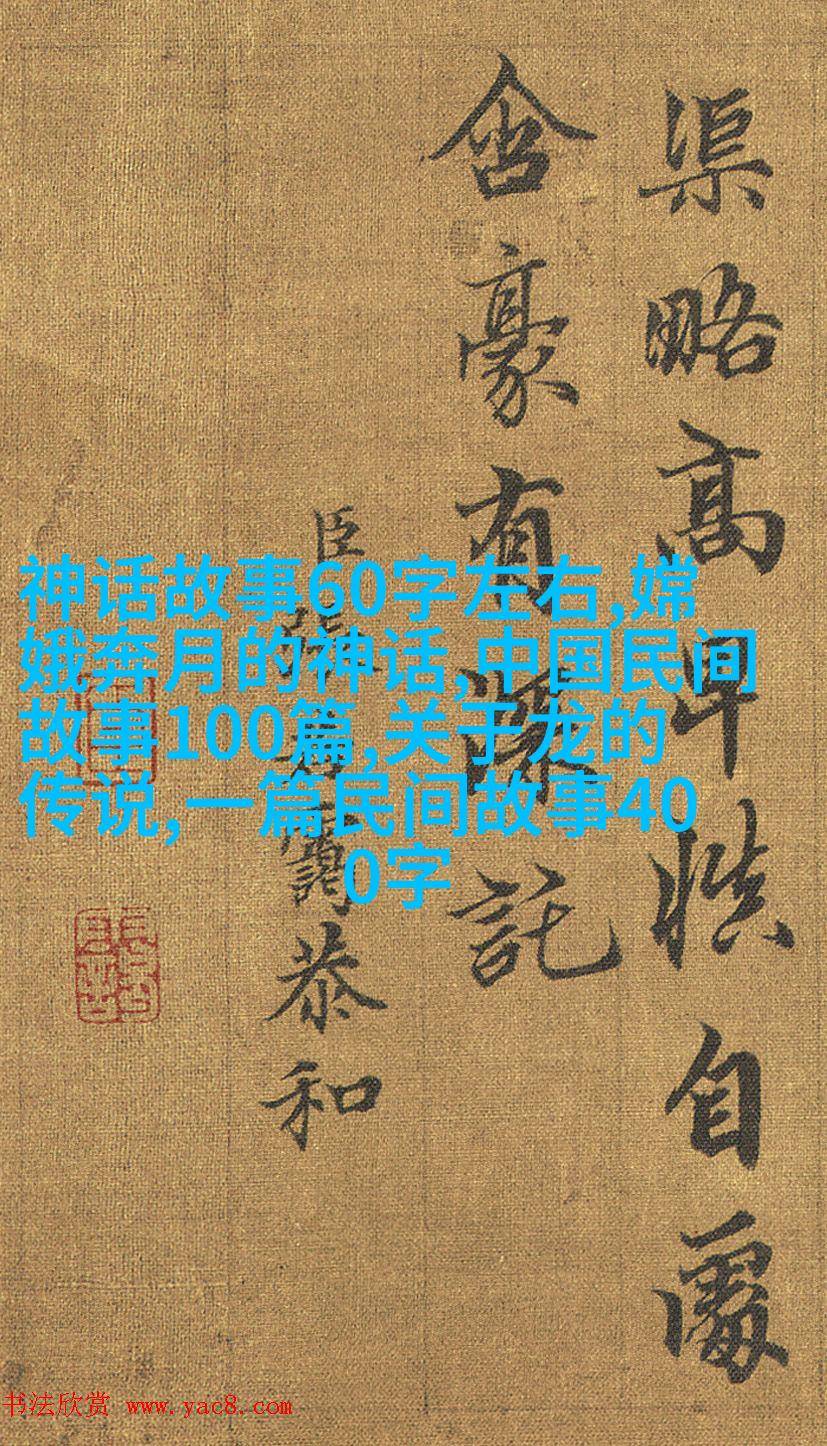 渠略高卑慎自處
含豪有深託
臣張若靄恭和
神话故事60字左右,嫦
娥奔月的神话,中国民间
故事100篇,关于龙的
传说,一篇民间故事40
0字
书法欣赏 www.yac8.com